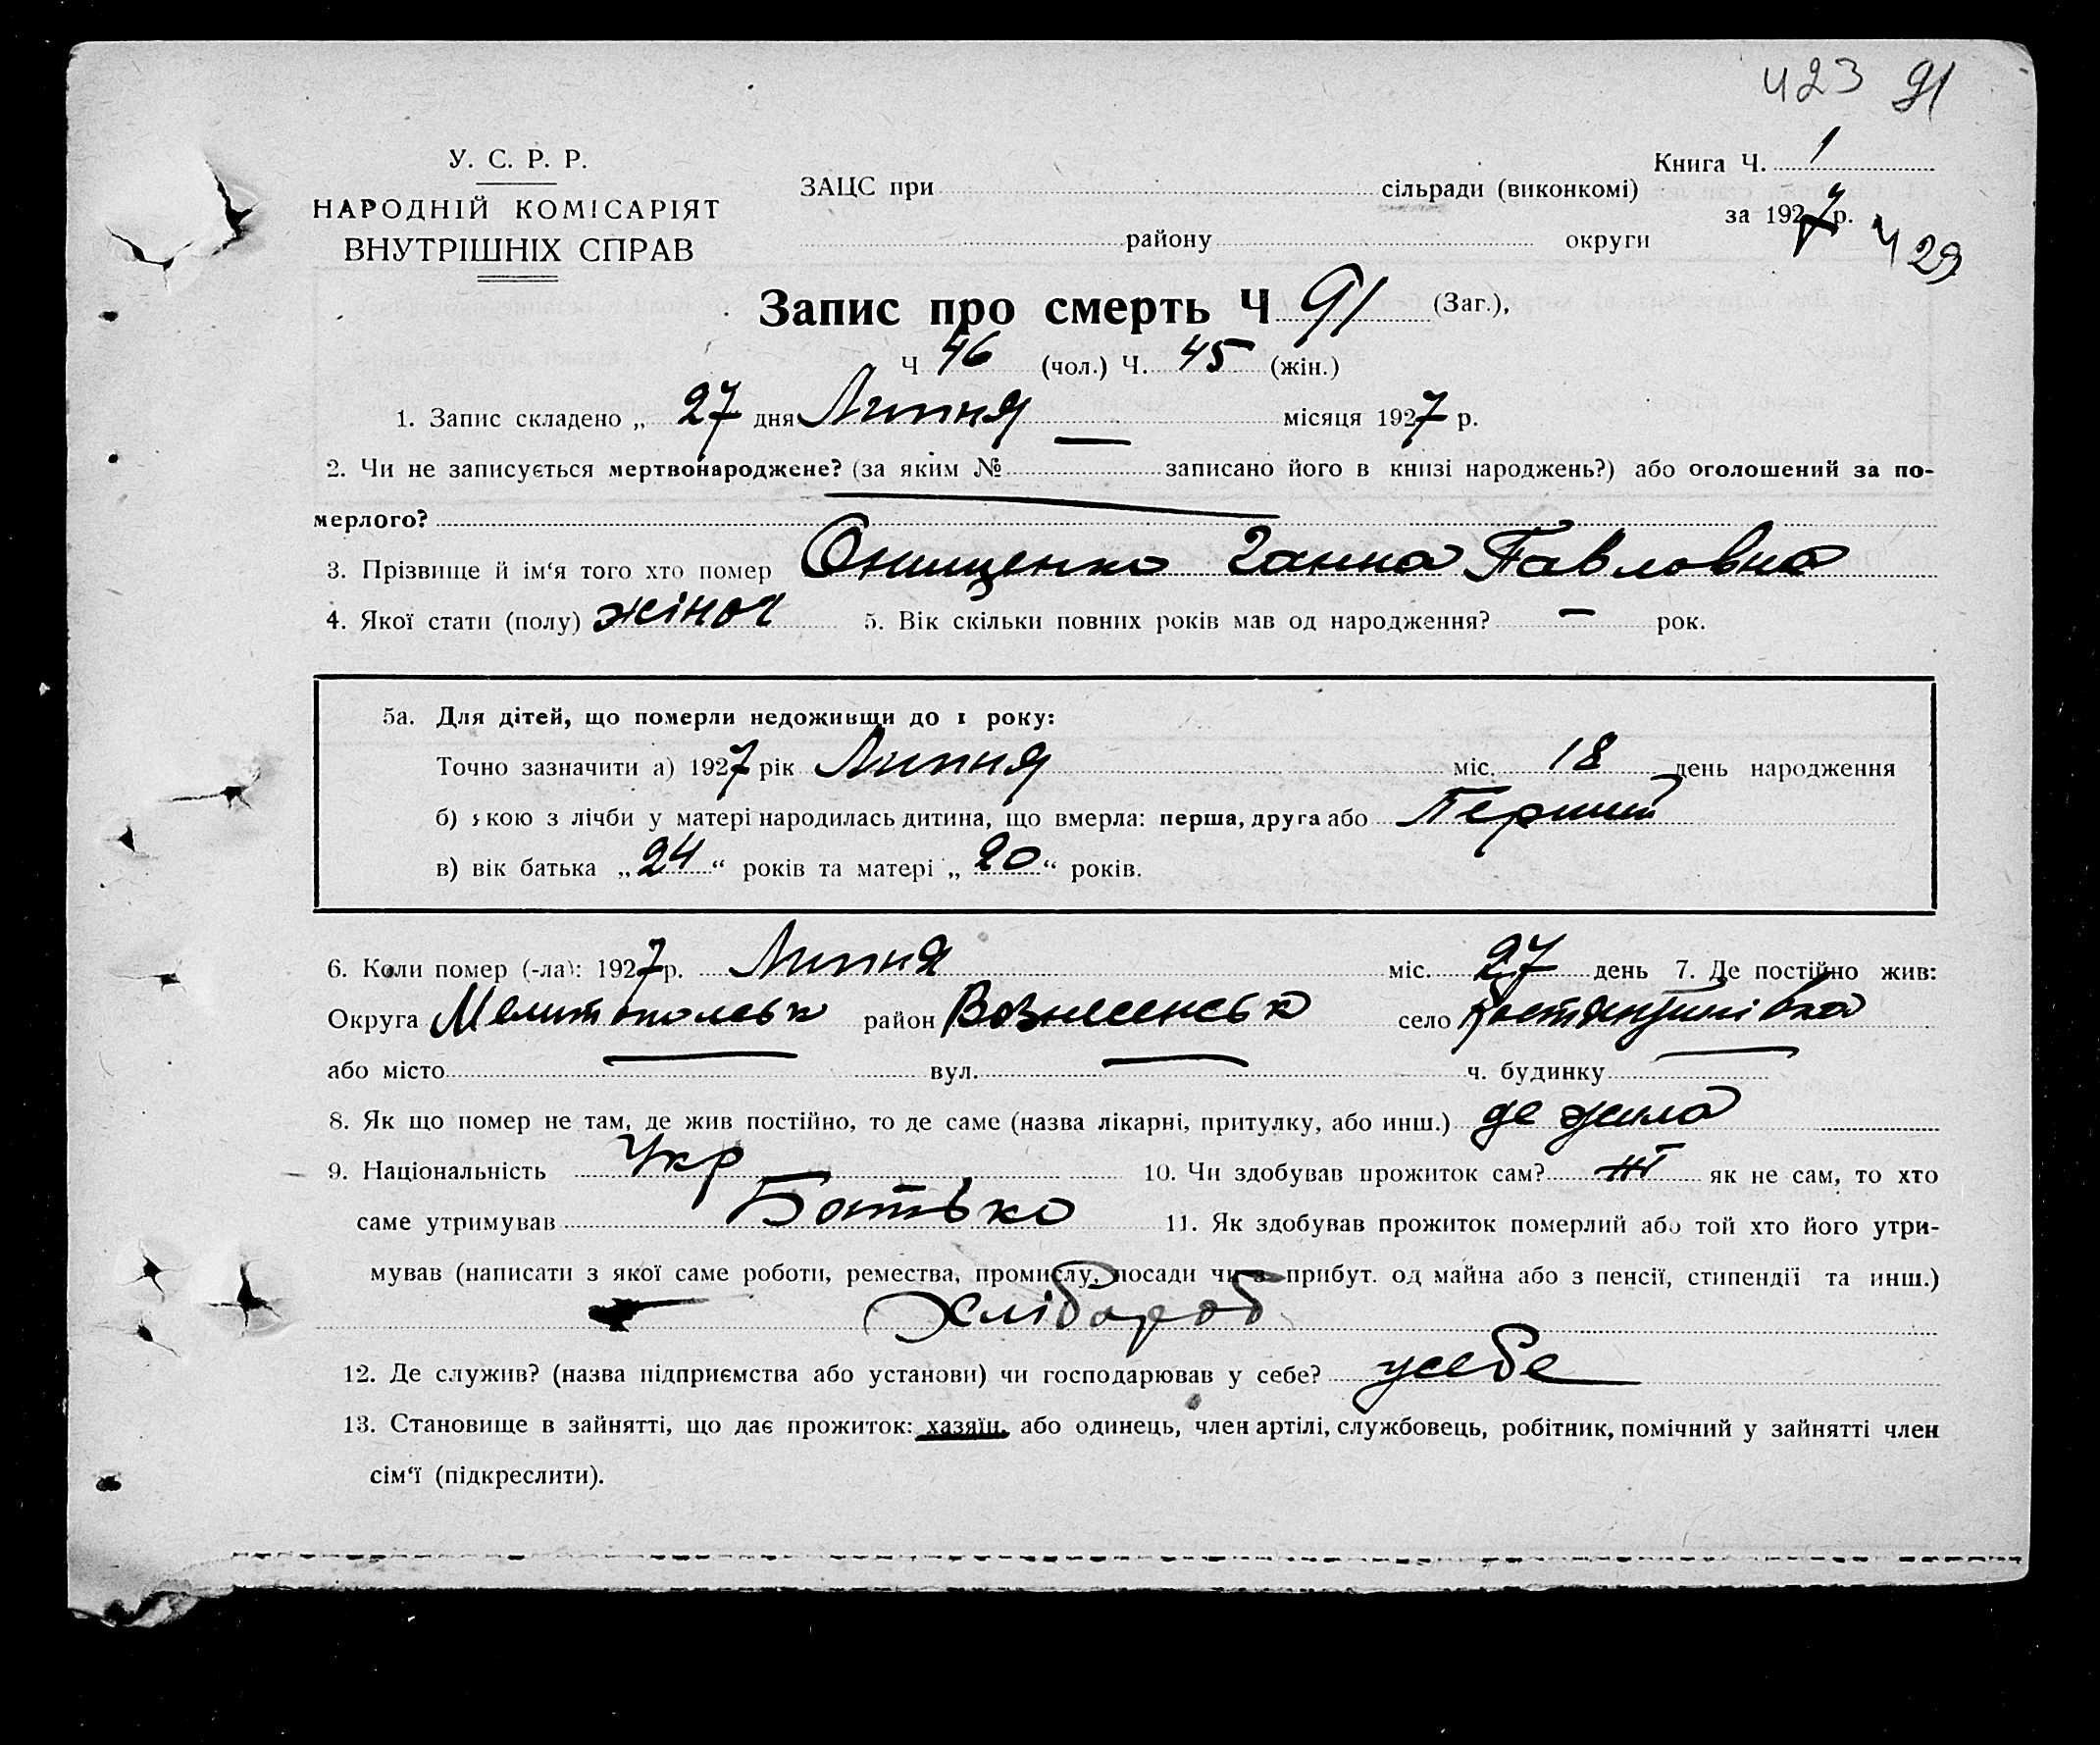 423 91
У. С. Р. Р.
НАРОДНІЙ КОМІСАРІЯТ
ВНУТРІШНІХ СПРАВ
ЗАЦС при сільради (виконкомі)
району округи
Книга Ч. 1
за 1927 р.
Ч 29
Запис про смерть Ч 91 (Заг.),
Ч 46 (чол.) Ч. 45 (жін.)
1. Запис складено „ 27 дня Липня місяця 1927 р.
2. Чи не записується мертвонароджене? (за яким № — записано його в книзі народжень?) або оголошений за по-
мерлого?
3. Прізвище й ім‘я того хто помер Онищенко Ганна Павловна
4. Якої стати (полу) жіноч 5. Вік скільки повних років мав од народження? — рок.
5а. Для дітей, що померли недоживши до 1 року:
Точно зазначити а) 1927 рік Липня міс. 18 день народження
б) якою з лічби у матері народилась дитина, що вмерла: перша, друга або Перший
в) вік батька „24“ років та матері „20“ років.
6. Коли помер (-ла): 1927 р. Липня міс. 27 день 7. Де постійно жив:
Округа Мелитопольськ район Вознесенськ село Костянтинівка
або місто — вул. — ч. будинку —
8. Як що помер не там, де жив постійно, то де саме (назва лікарні, притулку, або инш.) де жила
9. Національність Укр 10. Чи здобував прожиток сам? як не сам, то хто
саме утримував Батько 11. Як здобував прожиток померлий або той хто його утри-
мував (написати з якої саме роботи, ремества, промислу, посади чи з прибут. од майна або з пенсії, стипендії та инш.)
Хлібороб
12. Де служив? (назва підприємства або установи) чи господарював у себе? усебе
13. Становище в зайнятті, що дає прожиток: хазяїн, або одинець, член артілі, службовець, робітник, помічний у зайнятті член
сім‘ї (підкреслити).